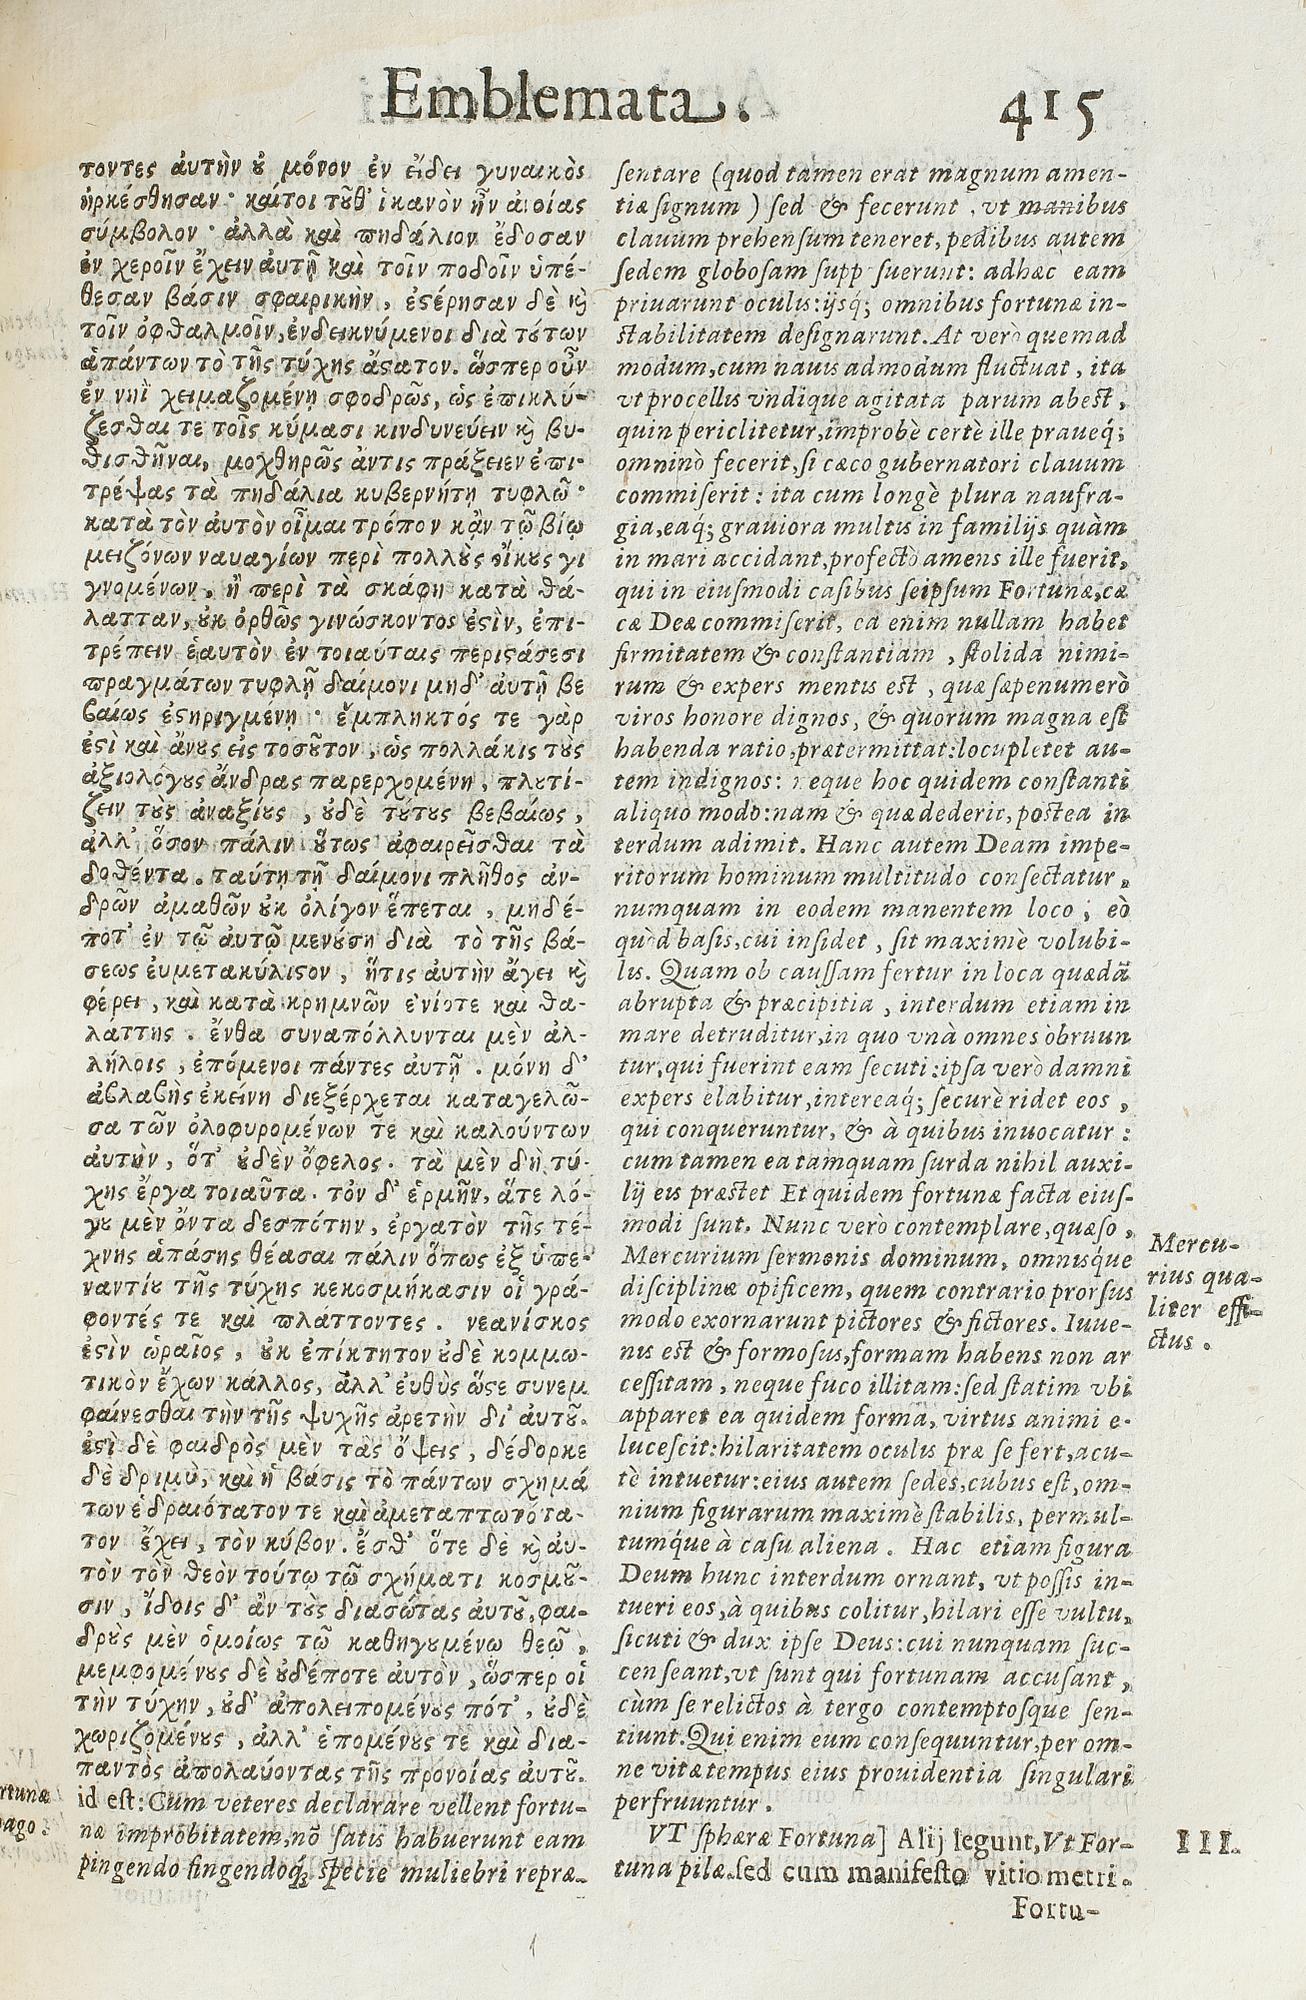 Emblemata.
415
τοντες ἀυτὴν ȣ μόνον ἐν ἔιδει γυναικὸς
ἠρκέσθησαν· καίτοι τȣ͂θ' ἱκανὸν ἦν ἀνοίας
σύμβολον· ἀλλὰ καὶ πηδάλιον ἔδοσαν
ἐν χεροῖν ἔχειν ἀυτῇ καὶ τοῖν ποδοῖν ὑπέ-
θεσαν βάσιν σφαιρικὴν, ἐϛέρησαν δὲ κỳ
τοῖν ὀφθαλμοῖν, ἐνδεικνύμενοι διὰ τȣ́των
ἁπάντων τὸ τῆς τύχης ἄϛατον. ὥσπερ οὖν
ἐν νηῒ χειμαζομένῃ σφοδρῶς, ὡς ἐπικλύ-
ζεσθαι τε τοῖς κύμασι κινδυνεύειν κỳ βυ-
θισθῆναι, μοχθηρῶς ἄντις πράξειεν ἐπι-
τρέψας τὰ πηδάλια κυβερνήτῃ τυφλῷ·
κατὰ τὸν ἀυτὸν οἶμαι τρόπον κᾂν τῷ βίῳ
μειζόνων ναυαγίων περὶ πολλȣ̀ς ὄικȣς γι
γνομένων, ἢ περὶ τὰ σκάφη κατὰ θά-
λατταν, ȣκ ὀρθῶς γινώσκοντος ἐϛὶν, ἐπι-
τρέπειν ἑαυτὸν ἐν τοιαύταις περιϛάσεσι
πραγμάτων τυφλῇ δαίμονι μηδ' ἀυτῇ βε
βαίως ἐϛηριγμένῃ· ἔμπληκτός τε γὰρ
ἐϛὶ καὶ ἄνȣς εἰς τοσȣ͂τον, ὡς πολλάκις τȣ̀ς
ἀξιολόγȣς ἄνδρας παρερχομένη, πλȣτί-
ζειν τȣ̀ς ἀναξίȣς, ȣδὲ τȣ́τȣς βεβαίως,
ἀλλ' ὅσον πάλιν ȣ́τως ἀφαιρεῖσθαι τὰ
δοθέντα. ταύτῃ τῇ δαίμονι πλῆθος ἀν-
δρῶν ἀμαθῶν ȣκ ὀλίγον ἕπεται, μηδέ-
ποτ' ἐν τῷ ἀυτῷ μενȣ́σῃ διὰ τὸ τῆς βά-
σεως ἐυμετακύλιϛον, ἥτις ἀυτὴν ἄγει κỳ
φέρει, καὶ κατὰ κρημνῶν ἐνίοτε καὶ θα-
λάττης. ἔνθα συναπόλλυνται μὲν ἀλ-
λήλοις, ἑπόμενοι πάντες ἀυτῇ. μόνη δ'
ἀβλαβὴς ἐκείνη διεξέρχεται καταγελῶ-
σα τῶν ὀλοφυρομένων τε καὶ καλούντων
ἀυτὴν, ὅτ' ȣδὲν ὄφελος. τὰ μὲν δὴ τύ-
χης ἔργα τοιαῦτα. τὸν δ' ἑρμῆν, ἅτε λό-
γȣ μὲν ὄντα δεσπότην, ἐργατὸν τῆς τέ-
χνης ἁπάσης θέασαι πάλιν ὅπως ἐξ ὑπε-
ναντίȣ τῆς τύχης κεκοσμήκασιν οἱ γρά-
φοντές τε καὶ πλάττοντες. νεανίσκος
ἐϛὶν ὡραῖος, ȣκ ἐπίκτητον ȣδὲ κομμω-
τικὸν ἔχων κάλλος, ἀλλ' ἐυθὺς ὥϛε συνεμ
φαίνεσθαι τὴν τῆς ψυχῆς ἀρετὴν δι' ἀυτȣ͂.
ἐϛὶ δὲ φαιδρὸς μὲν τὰς ὄψεις, δέδορκε
δὲ δριμὺ, καὶ ἡ βάσις τὸ πάντων σχημά
των ἑδραιότατον τε καὶ ἀμεταπτωτότα-
τον ἔχει, τὸν κύβον. ἔσθ' ὅτε δὲ κỳ ἀυ-
τὸν τὸν θεὸν τούτῳ τῷ σχήματι κοσμȣ͂-
σιν, ἴδοις δ' ἀν τȣ̀ς διασώτας ἀυτȣ͂, φαι-
δρȣ̀ς μὲν ὁμοίως τῷ καθηγȣμένῳ θεῷ,
μεμφομένȣς δὲ ȣδέποτε ἀυτὸν, ὥσπερ οἱ
τὴν τύχην, ȣδ' ἀπολειπομένȣς πότ', ȣδὲ
χωριζομένȣς, ἀλλ' ἑπομένȣς τε καὶ δια-
παντὸς ἀπολαύοντας τῆς προνοίας ἀυτȣ͂.
id est: Cum veteres declarare vellent fortu-
næ improbitatem, nõ satis habuerunt eam
pingendo fingendoq́; specie muliebri repræ-
sentare (quod tamen erat magnum amen-
tiæ signum) sed & fecerunt, vt manibus
clauum prehensum teneret, pedibus autem
sedem globosam supposuerunt: adhæc eam
priuarunt oculis: ijsq́; omnibus fortunæ in-
stabilitatem designarunt. At verò quemad
modum, cum nauis admodum fluctuat, ita
vt procellis vndique agitata parum abest,
quin periclitetur, improbè certè ille praueq́;
omninò fecerit, si cæco gubernatori clauum
commiserit: ita cum longè plura naufra-
gia, eaq́; grauiora multis in familijs quàm
in mari accidant, profectò amens ille fuerit,
qui in eiusmodi casibus seipsum Fortunæ, cæ
cæ Deæ commiserit, ea enim nullam habet
firmitatem & constantiam, stolida nimi-
rum & expers mentis est, quæ sæpenumerò
viros honore dignos, & quorum magna est
habenda ratio, prætermittat: locupletet au-
tem indignos: neque hoc quidem constanti
aliquo modo: nam & quæ dederit, postea in
terdum adimit. Hanc autem Deam impe-
ritorum hominum multitudo consectatur,
numquam in eodem manentem loco; eò
quòd basis, cui insidet, sit maximè volubi-
lis. Quam ob caussam fertur in loca quædã
abrupta & præcipitia, interdum etiam in
mare detruditur, in quo vnà omnes obruun
tur, qui fuerint eam secuti: ipsa verò damni
expers elabitur, intereaq́; securè ridet eos,
qui conqueruntur, & à quibus inuocatur:
cum tamen ea tamquam surda nihil auxi-
lij eis præstet Et quidem fortunæ facta eius-
modi sunt. Nunc verò contemplare, quæso,
Mercurium sermonis dominum, omnisq́ue
disciplinæ opificem, quem contrario prorsus
modo exornarunt pictores & fictores. Iuue-
nis est & formosus, formam habens non ar
cessitam, neque fuco illitam: sed statim vbi
apparet ea quidem forma, virtus animi e-
lucescit: hilaritatem oculis præ se fert, acu-
tè intuetur: eius autem sedes, cubus est, om-
nium figurarum maximè stabilis, permul-
tumq́ue à casu aliena. Hac etiam figura
Deum hunc interdum ornant, vt possis in-
tueri eos, à quibus colitur, hilari esse vultu,
sicuti & dux ipse Deus: cui nunquam suc-
censeant, vt sunt qui fortunam accusant,
cùm se relictos à tergo contemptosque sen-
tiunt. Qui enim eum consequuntur, per om-
ne vitæ tempus eius prouidentia singulari
perfruuntur.
VT sphæræ Fortuna] Alij legunt, Vt For-
tuna pilæ. sed cum manifesto vitio metri.
Fortu-
Mercu-
rius qua-
liter effi-
ctus.
III.